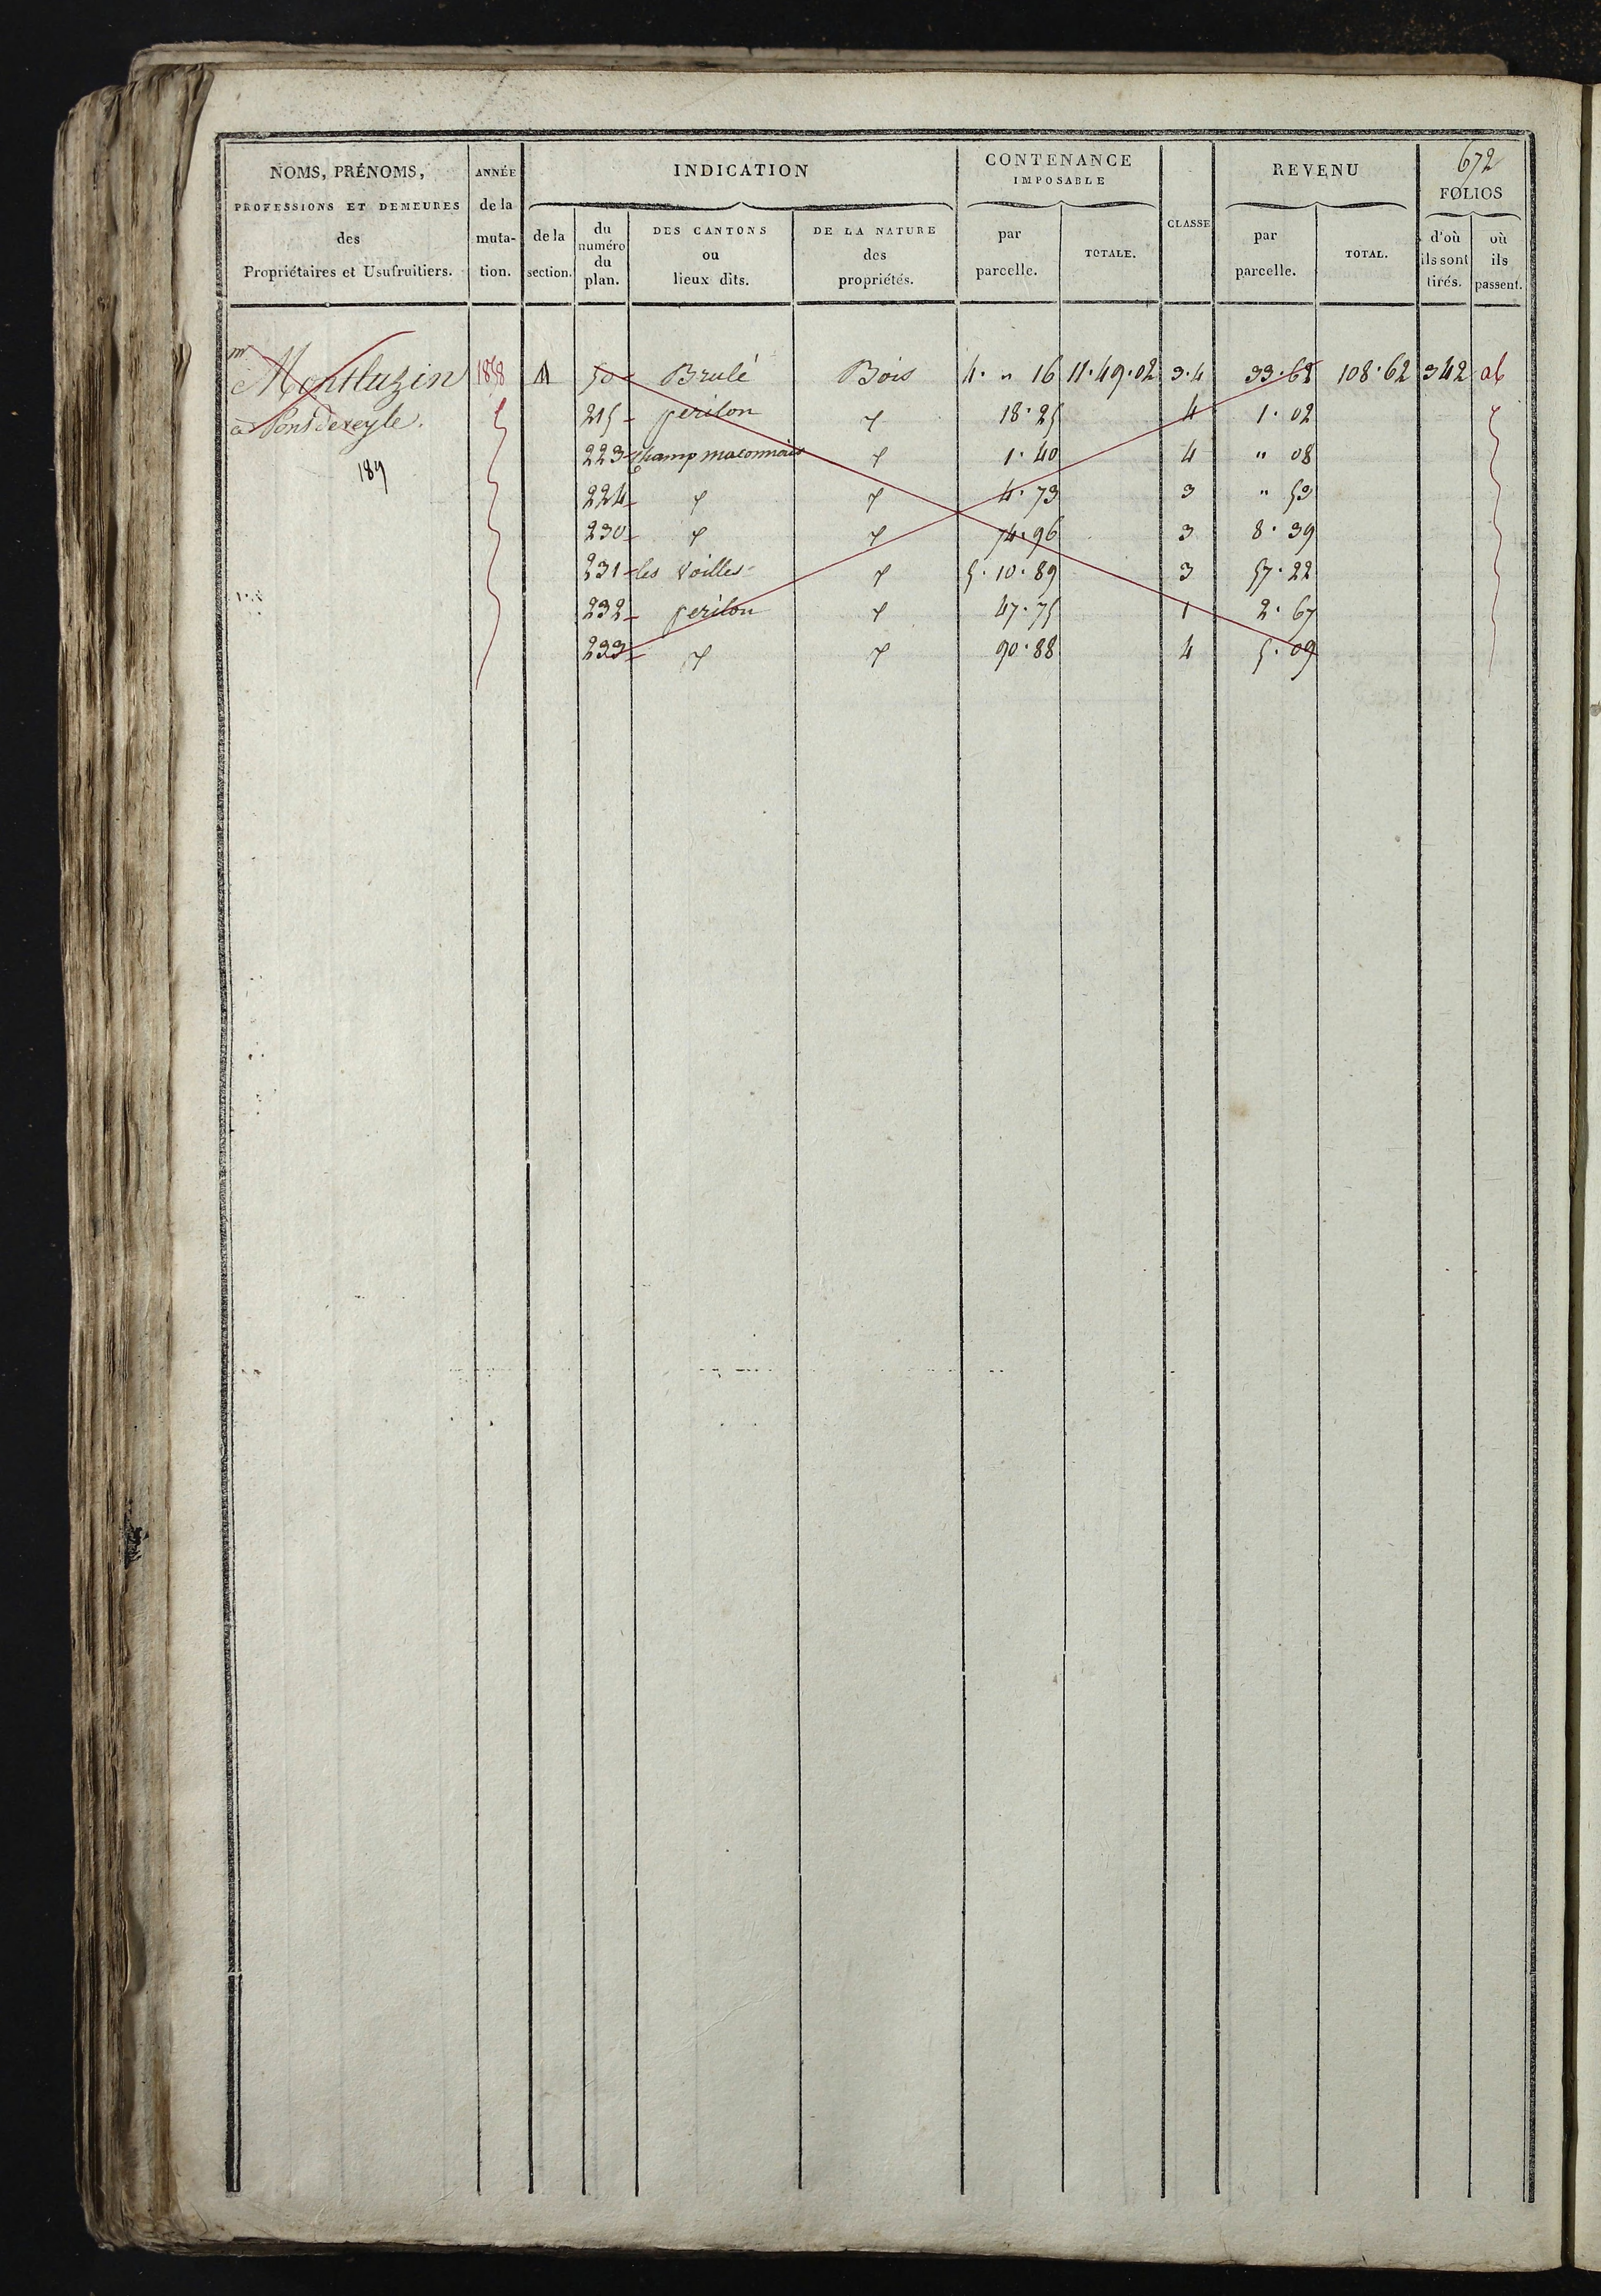 672
NOMS, PRÉNOMS, PROFESSIONS ET DEMEURES des Propriétaires et Usufruitiers.
ANNÉE de la muta-tion.
INDICATION
de la section.
du numéro du plan.
DES CANTONS ou lieux dits.
DE LA NATURE des propriétés.
CONTENANCE IMPOSABLE
par parcelle.
TOTALE.
CLASSE
REVENU
par parcelle.
TOTAL.
FOLIOS
d'où ils sont tirés.
où ils passent.
mr Montluzin 1858 A 50 Brulé Bois 4 · " 16 11·49·02 3·4 33·62 108·62 342
à Pontdeveyle. 215 perilon 18·25 4 1·02
223 champ maconnais 1·40 4 " 08
189
224 4·73 3 " 53
230 74·96 3 8·39
231 les Voilles 5·10·89 3 57·22
232 perilon 47·75 1 2·67
233 90·88 4 5·09